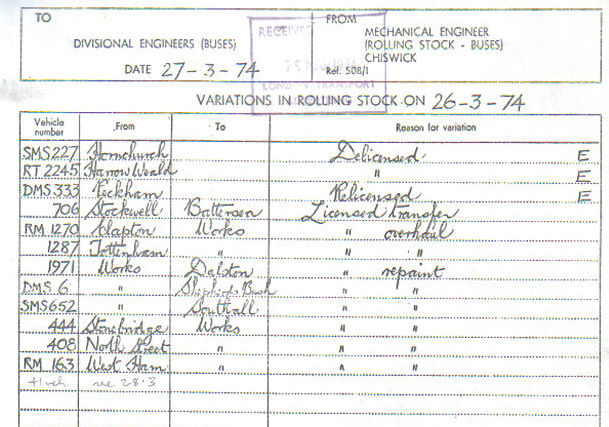 TO
DIVISIONAL ENGINEERS (BUSES)
DATE 27-3-74
RECEIVED
LONDON TRANSPORT
FROM
MECHANICAL ENGINEER
(ROLLING STOCK - BUSES)
CHISWICK
Ref. 508/1
VARIATIONS IN ROLLING STOCK ON 26-3-74
Vehicle number From To Reason for variation
SMS 227 Hornchurch Delicensed. E
RT 2245 Harrow Weald " E
DMS 333 Peckham Relicensed E
706 Stockwell Battersea Licensed transfer
RM 1270 Clapton Works " overhaul
1287 Tottenham " " "
1971 Works Dalston " repaint
DMS 6 " Shepherds Bush " "
SMS 652 " Southall " "
444 Stonebridge Works " "
408 North Street " " "
RM 163 West Ham " " "
28.3